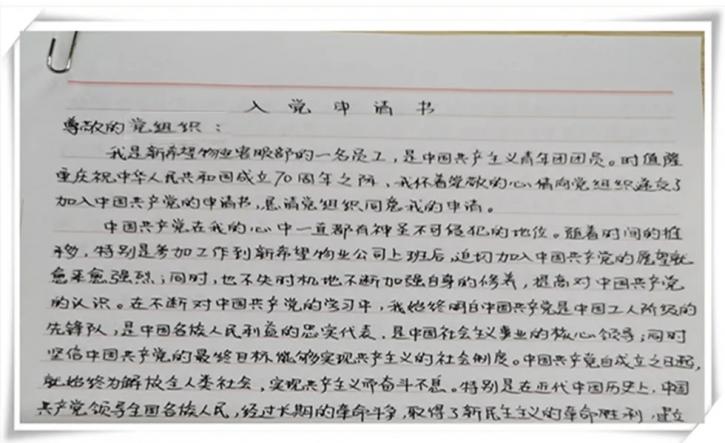 入党申请书
尊敬的党组织：
我是新希望物业客服部的一名员工，是中国共产主义青年团团员。时值隆
重庆祝中华人民共和国成立70周年之际，我怀着崇敬的心情向党组织递交了
加入中国共产党的申请书，恳请党组织同意我的申请。
中国共产党在我的心中一直都有神圣不可侵犯的地位。随着时间的推
移，特别是参加工作到新希望物业公司上班后，迫切加入中国共产党的愿望就
愈来愈强烈；同时，也不失时机地不断加强自身的修养，提高对中国共产党
的认识。在不断对中国共产党的学习中，我始终明白中国共产党是中国工人阶级的
先锋队，是中国各族人民利益的忠实代表，是中国社会主义事业的核心领导；同时
坚信中国共产党的最终目标能够实现共产主义的社会制度。中国共产党自成立之日起，
就始终为解放全人类社会，实现共产主义而奋斗不息。特别是在近代中国历史上，中国
共产党领导全国各族人民，经过长期的革命斗争，取得了新民主主义的革命胜利，建立